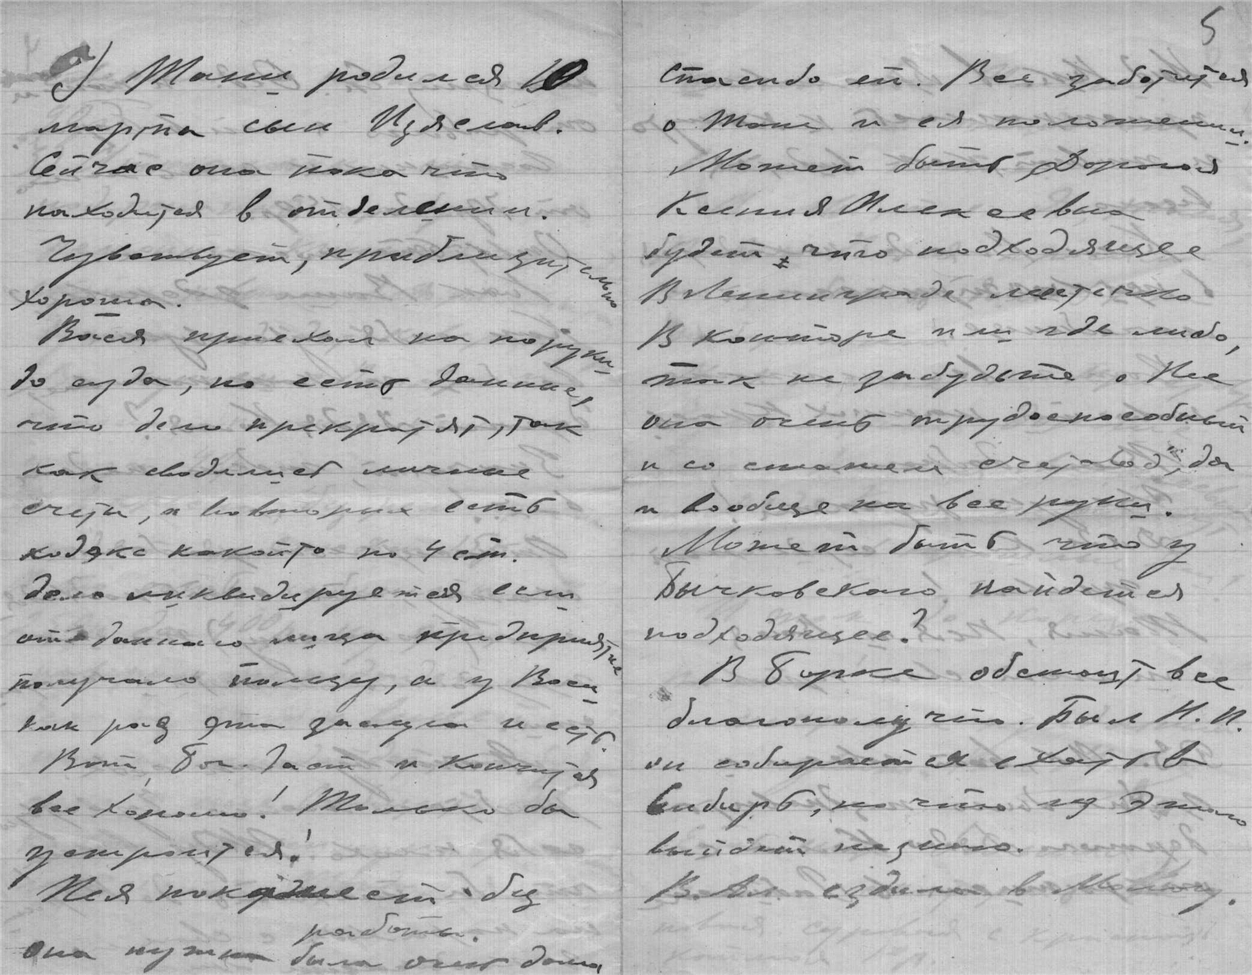 5
а) Тани родился 10
марта сын Изяслав.
Сейчас она пока что
находится в отделении.
Чувствует, приблизительно
хорошо.
Вася приехал на поруки
до суда, но есть данные,
что дело прекратят, так
как сводились личные
счеты, и во вторых есть
кодекс какойто по 4 ст.
дело ликвидируется если
от данного лица предприятие
получало пользу, а у Васи
как раз эта заслуга и есть.
Вот, Бог даст и кончится
все хорошо! Только бы
устроится!
без
работы.
Она нужна была очень дома
спасибо ей. Все заботится
о Тане и ея положении.
Может быть Дорогая
Ксения Алексеевна
будет что подходящее
в Ленинграде местечко
в конторе или где либо,
так не забудьте о Нее
она очень трудоспособный
и со стажем счетовод, да
и вообще на все руки.
Может быть что у
Бычковского найдется
подходящее?
В Борке обстоит все
благополучно. Был Н. И.
он собирается ехать в
Сибирь, но что из этого
выйдет незнаю.
В. Ал. ездила в Мологу.